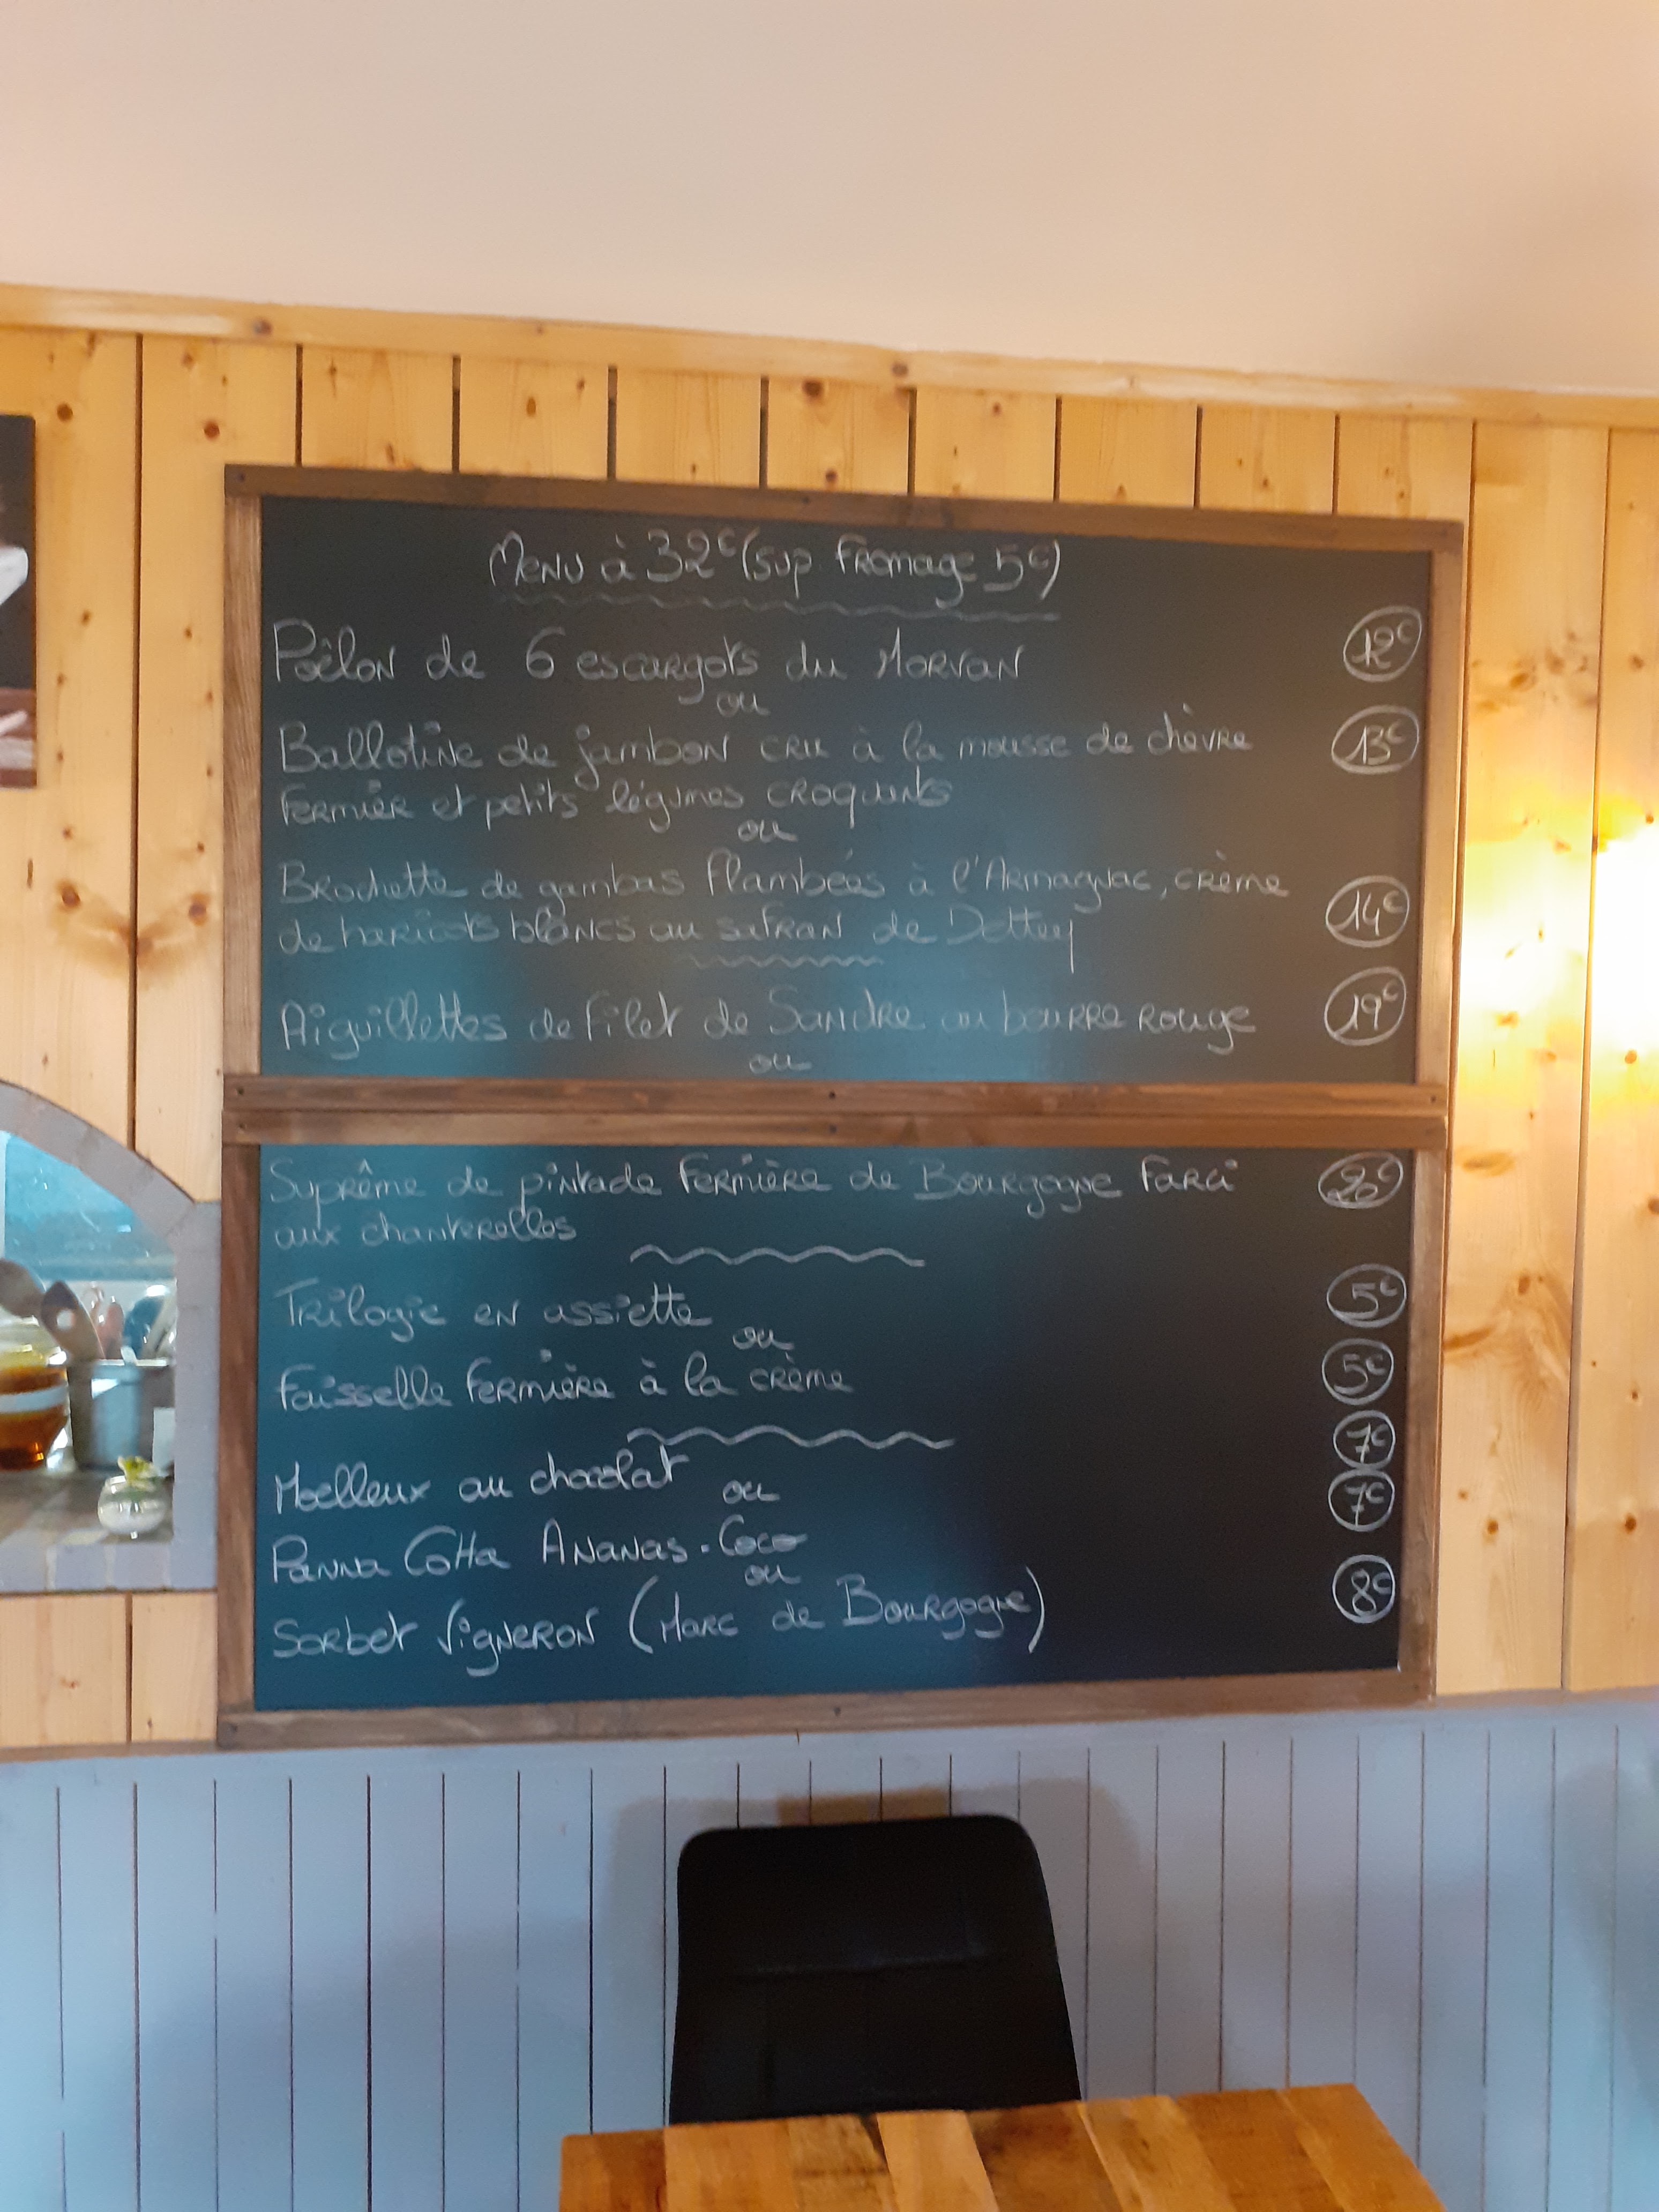 Menu à 32€ (sup fromage 5€)
Poêlon de 6 escargots du Morvan 12€
ou
Ballotine de jambon cru à la mousse de chèvre 13€
fermier et petits légumes croquants
ou
Brochette de gambas flambées à l'Armagnac, crème
de haricots blancs au safran de Dettey 14€
Aiguillettes de filet de Sandre au bourre rouge 19€
ou
Suprême de pintade fermière de Bourgogne farci 20€
aux chanterelles
Trilogie en assiette 5€
ou
Faisselle fermière à la crème 5€
7€
Moelleux au chocolat
ou 7€
Panna Cotta Ananas-Coco
ou 8€
Sorbet Vigneron (Marc de Bourgogne)